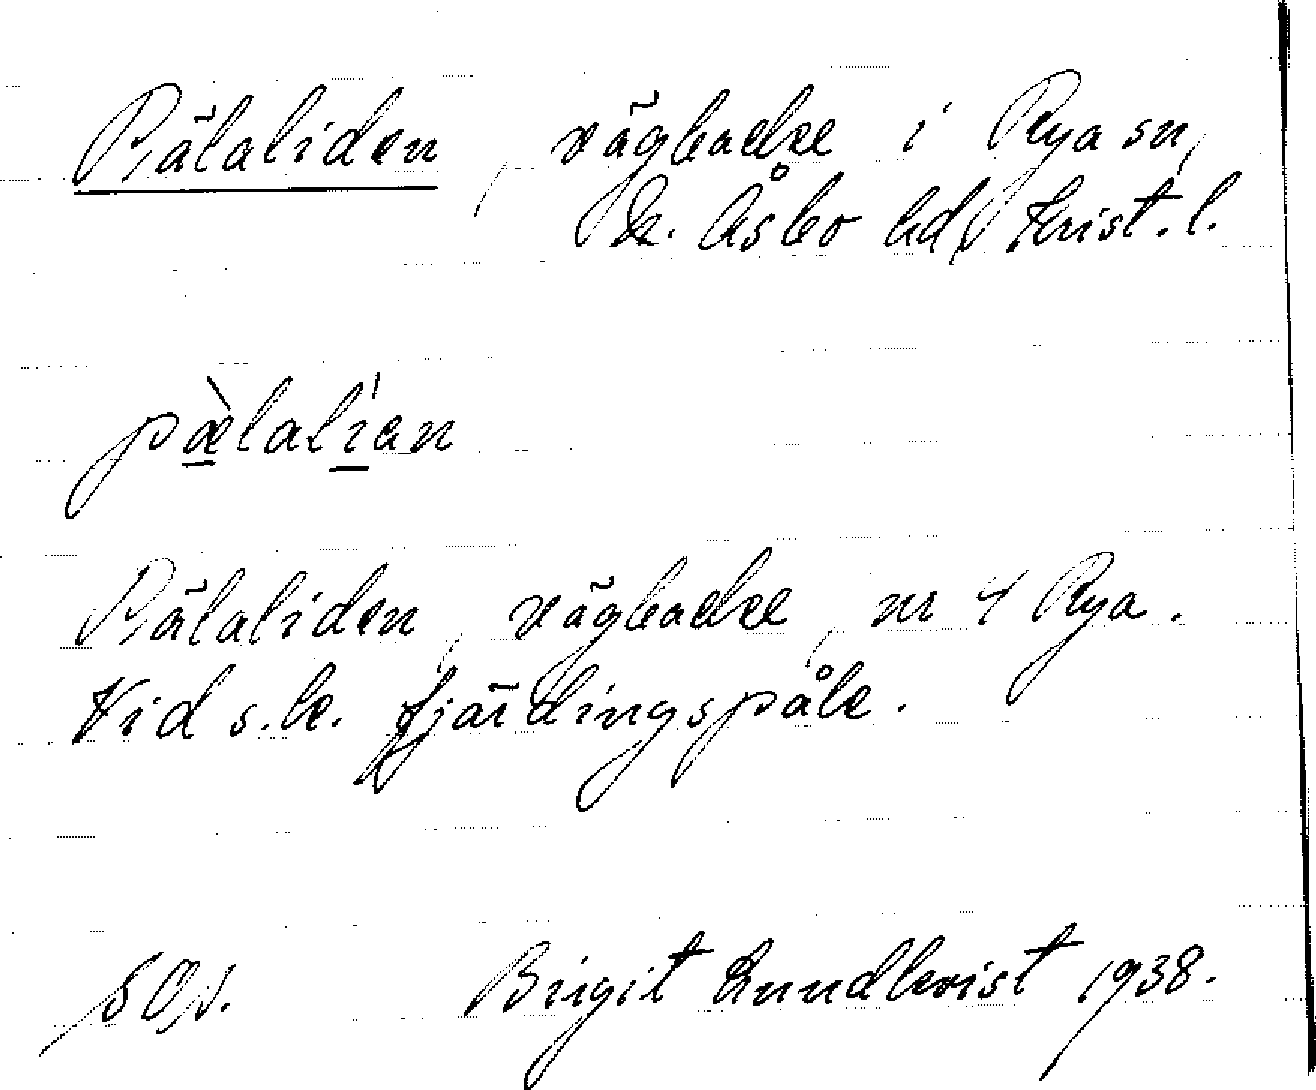 Pälaliden, vägbacke i Rya sn,
N. Åsbo hd, Krist. l.
pæ̀lalían
Pälaliden, vägbacke, nr 4 Rya.
Vid s.k. fjärdingspåle.
SOV.
Birgit Lundkvist 1938.